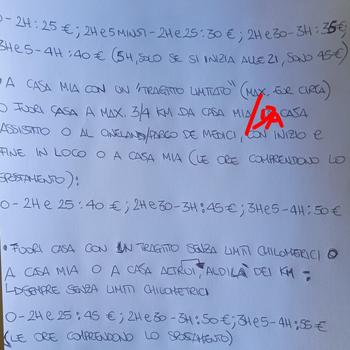 0-2H: 25 €; 2H e 5 MINUTI - 2H e 25: 30 €; 2H e 30-3H: 35 €;
3H e 5-4H: 40 € (5H, SOLO SE SI INIZIA ALLE 21, SONO 45 €)
A CASA MIA CON UN "TRAGITTO LIMITATO" (MAX. EUR CIRCA)
O FUORI CASA A MAX. 3/4 KM DA CASA MIA/DA CASA
ASSISTITO O AL CINELAND/PARCO DE MEDICI, CON INIZIO E
FINE IN LOCO O A CASA MIA (LE ORE COMPRENDONO LO
SPOSTAMENTO):
0-2H e 25: 40 €; 2H e 30-3H: 45 €; 3H e 5-4H: 50 €
• FUORI CASA CON UN TRAGITTO SENZA LIMITI CHILOMETRICI O
A CASA MIA O A CASA ALTRUI, ALDILÀ DEI KM =
SEMPRE SENZA LIMITI CHILOMETRICI
0-2H e 25: 45 €; 2H e 30-3H: 50 €; 3H e 5-4H: 55 €
(LE ORE COMPRENDONO LO SPOSTAMENTO)